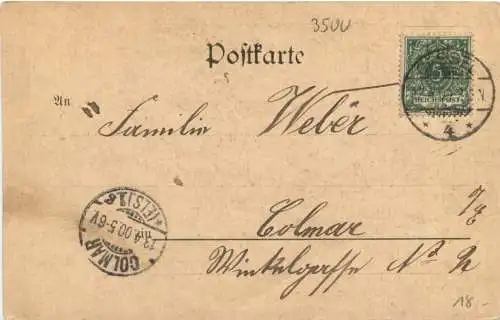 3500
Postkarte
5
REICHSPOST
4
An
Familie Weber
Colmar
Winkelgasse No
COLMAR (ELS) 1 c
13.4.00.5-6V
18 -